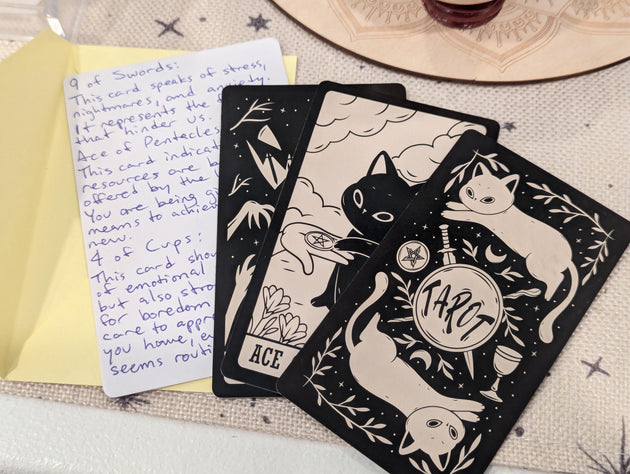 9 of Swords:
This card speaks of stress,
nightmares, and anxiety.
It represents the
that hinder us.
Ace of Pentacles
This card indicat
resources are b
offered by the
You are being gi
means to achie
new.
4 of Cups:
This card sho
of emotional
but also stro
for boredom
care to appr
you home, e
seems routi
ACE
TAROT